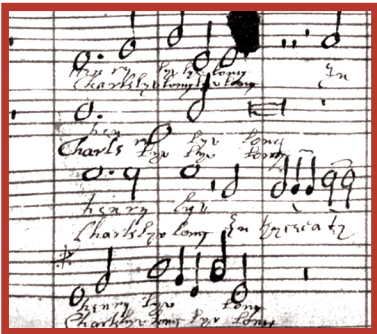 henry lyve long In
Charls lyve long lyve long
hen ry lyve long
Charls lyve lyve long
henry lyve
Charls lyve long In
henry lyve long
Charls lyve long lyve long